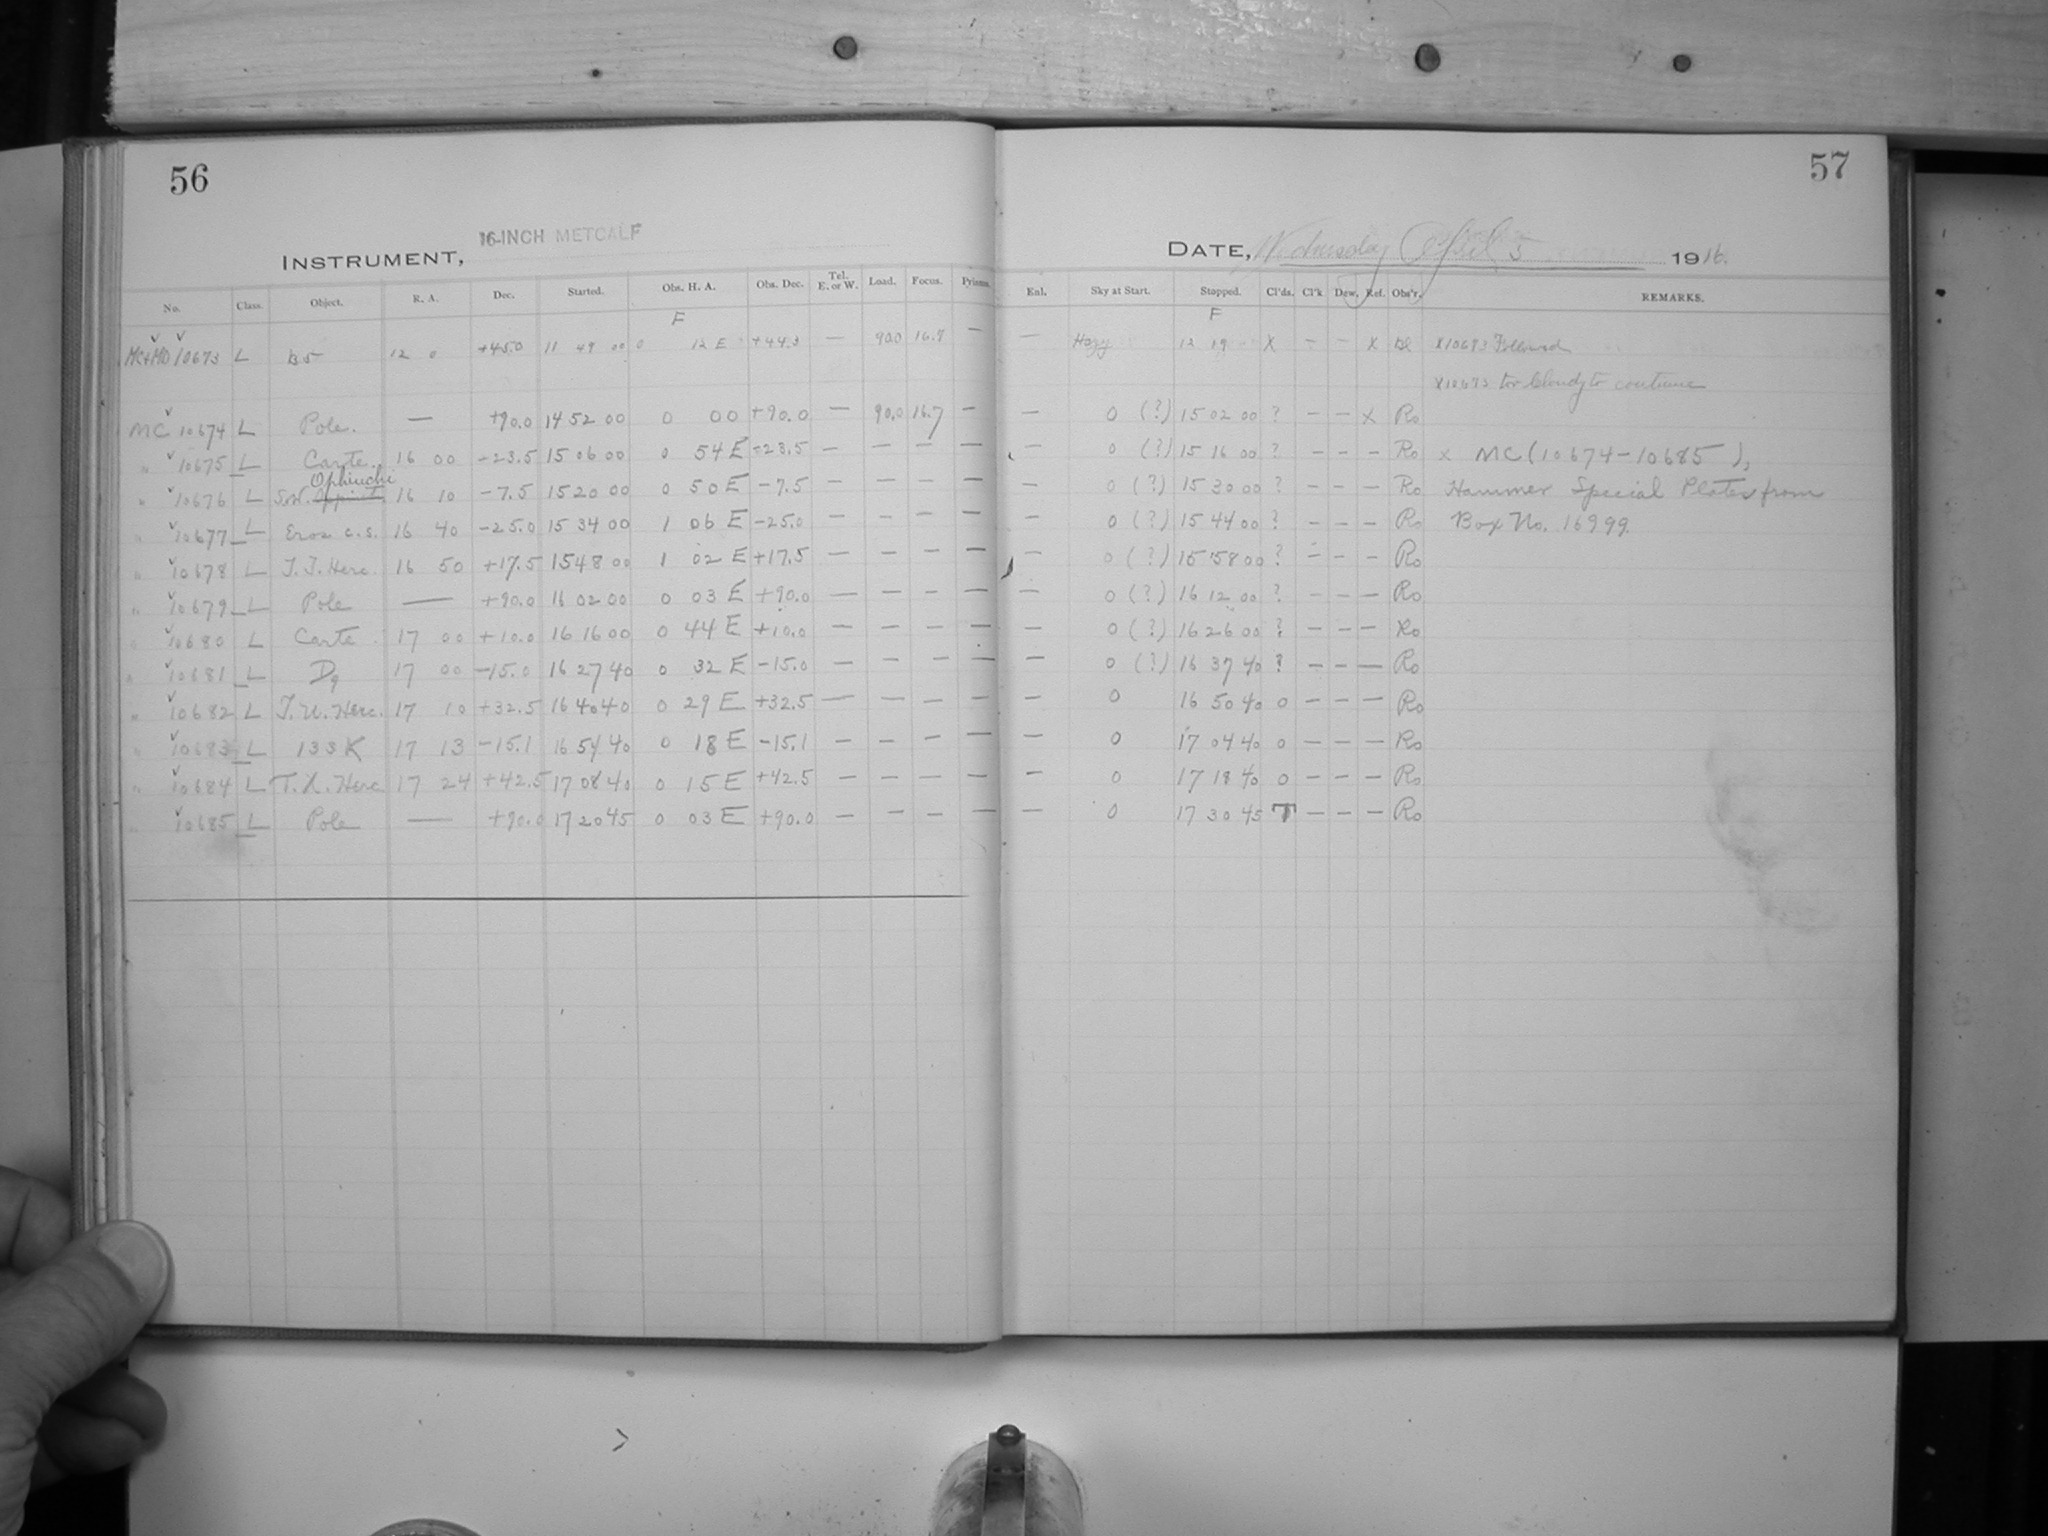 56
57
INSTRUMENT, 16-INCH METCALF
DATE, Wednesday April 5 1916.
No. Class. Object. R. A. Dec. Started. Obs. H. A. Obs. Dec. Tel. E. or W. Load. Focus. Enl. Sky at Start. Stopped. Cl'ds. Cl'k Dew. Ref. Obs'r. REMARKS.
F F
10673 L 12 0 +45.0 11 49 00 0 12 E +44.3 — 90.0 — — Hazy 12 19 X — — X X10673 Followed
X10673 too Cloudy to continue
MC 10674 L Pole. — +90.0 14 52 00 0 00 +90.0 — 90.0 16.7 — — 0 (?) 15 02 00 ? — — X Ro
" 10675 L Carte. 16 00 -23.5 15 06 00 0 54 E -23.5 — — — — — 0 (?) 15 16 00 ? — — — Ro x MC (10674-10685),
Ophiuchi
" 10676 L 16 10 -7.5 15 20 00 0 50 E -7.5 — — — — — 0 (?) 15 30 00 ? — — — Ro Hammer Special Plates from
" 10677 L Eros c.s. 16 40 -25.0 15 34 00 1 06 E -25.0 — — — — — 0 (?) 15 44 00 ? — — — Ro Box No. 16999.
" 10678 L T. T. Herc. 16 50 +17.5 15 48 00 1 02 E +17.5 — — — — — 0 (?) 15 58 00 ? — — — Ro
" 10679 L Pole — +90.0 16 02 00 0 03 E +90.0 — — — — — 0 (?) 16 12 00 ? — — — Ro
" 10680 L Carte 17 00 +10.0 16 16 00 0 44 E +10.0 — — — — — 0 (?) 16 26 00 ? — — — Ro
" 10681 L D9 17 00 -15.0 16 27 40 0 32 E -15.0 — — — — — 0 (?) 16 37 40 ? — — — Ro
" 10682 L T. U. Herc. 17 10 +32.5 16 40 40 0 29 E +32.5 — — — — — 0 16 50 40 0 — — — Ro
" 10683 L 133K 17 13 -15.1 16 54 40 0 18 E -15.1 — — — — — 0 17 04 40 0 — — — Ro
" 10684 L T. X. Herc 17 24 +42.5 17 08 40 0 15 E +42.5 — — — — — 0 17 18 40 0 — — — Ro
" 10685 L Pole — +90.0 17 20 45 0 03 E +90.0 — — — — — 0 17 30 45 T — — — Ro